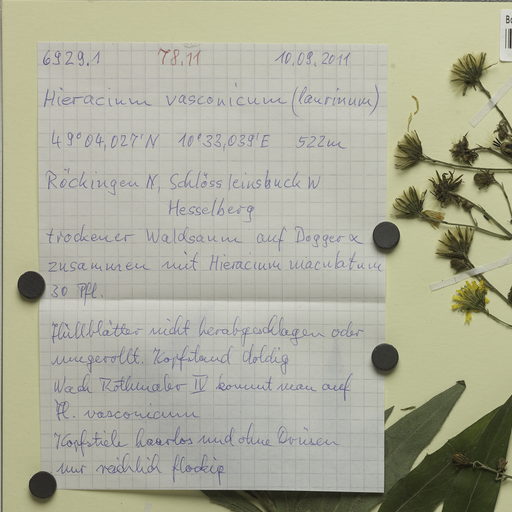 6929.1 78.11 10.09.2011
Hieracium vasconicum (laurinum)
49°04,027'N 10°33,039'E 522m
Röckingen N, Schlössleinsbuck W
Hesselberg
trockener Waldsaum auf Dogger α
zusammen mit Hieracium maculatum
30 Pfl.
Hüllblätter nicht herabgeschlagen oder
umgerollt. Kopfstand doldig
Nach Rothmaler IV kommt man auf
H. vasconicum
Kopfstiele haarlos und ohne Drüsen
nur reichlich flockig